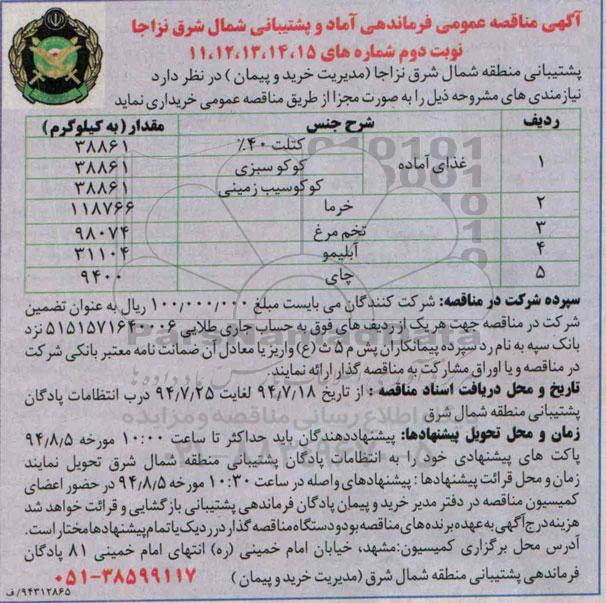 آگهی مناقصه عمومی فرماندهی آماد و پشتیبانی شمال شرق نزاجا
نوبت دوم شماره های ۱۱،۱۲،۱۳،۱۴،۱۵
پشتیبانی منطقه شمال شرق نزاجا (مدیریت خرید و پیمان) در نظر دارد
نیازمندی های مشروحه ذیل را به صورت مجزا از طریق مناقصه عمومی خریداری نماید
ردیف شرح جنس مقدار (به کیلوگرم)
۱ غذای آماده کتلت ۴۰٪ ۳۸۸۶۱
کوکو سبزی ۳۸۸۶۱
کوکوسیب زمینی ۳۸۸۶۱
۲ خرما ۱۱۸۷۶۶
۳ تخم مرغ ۹۸۰۷۴
۴ آبلیمو ۳۱۱۰۴
۵ چای ۹۴۰۰
سپرده شرکت در مناقصه: شرکت کنندگان می بایست مبلغ ۱۰۰,۰۰۰,۰۰۰ ریال به عنوان تضمین
شرکت در مناقصه جهت هر یک از ردیف های فوق به حساب جاری طلایی ۵۱۵۱۵۷۱۶۴۰۰۰۶ نزد
بانک سپه به نام رد سپرده پیمانکاران پش م ۵ ث (ع) واریز یا معادل آن ضمانت نامه معتبر بانکی شرکت
در مناقصه و یا اوراق مشارکت به مناقصه گذار ارائه نمایند.
تاریخ و محل دریافت اسناد مناقصه : از تاریخ ۹۴/۷/۱۸ لغایت ۹۴/۷/۲۵ درب انتظامات پادگان
پشتیبانی منطقه شمال شرق
زمان و محل تحویل پیشنهادها: پیشنهاددهندگان باید حداکثر تا ساعت ۱۰:۰۰ مورخه ۹۴/۸/۵
پاکت های پیشنهادی خود را به انتظامات پادگان پشتیبانی منطقه شمال شرق تحویل نمایند
زمان و محل قرائت پیشنهادها : پیشنهادهای واصله در ساعت ۱۰:۳۰ مورخه ۹۴/۸/۵ در حضور اعضای
کمیسیون مناقصه در دفتر مدیر خرید و پیمان پادگان فرماندهی پشتیبانی بازگشایی و قرائت خواهد شد
هزینه درج آگهی به عهده برنده های مناقصه بود و دستگاه مناقصه گذار در رد یک یا تمام پیشنهادها مختار است.
آدرس محل برگزاری کمیسیون:مشهد، خیابان امام خمینی (ره) انتهای امام خمینی ۸۱ پادگان
فرماندهی پشتیبانی منطقه شمال شرق (مدیریت خرید و پیمان) ۰۵۱-۳۸۵۹۹۱۱۷
۹۴۳۱۲۸۶۵/ف